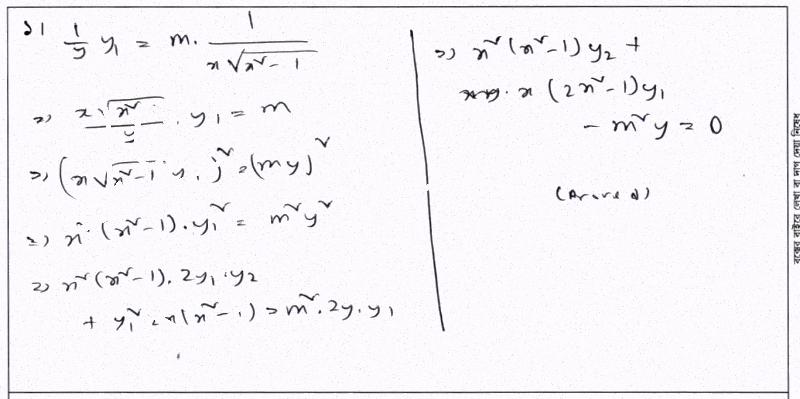 ১। 1/y y₁ = m. 1/(x√(x²-1))
⇒ x√x²/y . y₁ = m
⇒ (x√(x²-1) y₁)² = (my)²
⇒ x². (x²-1). y₁² = m²y²
⇒ x²(x²-1). 2y₁.y₂
+ y₁² . x(x²-1) = m². 2y.y₁
⇒ x²(x²-1)y₂ +
x (2x²-1)y₁
- m²y = 0
(Proved)
বক্সের বাইরে লেখা বা দাগ দেয়া নিষেধ